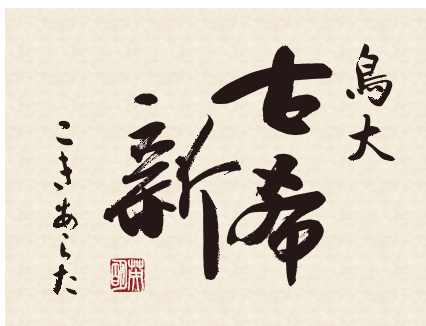 鳥大
古希
新
こきあらた